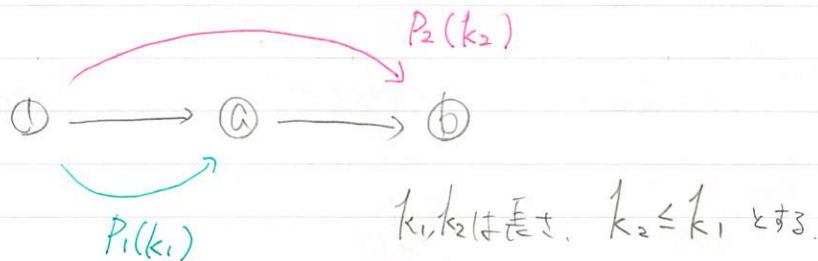 P₂(k₂)
① ⓐ ⓑ
P₁(k₁)
k₁,k₂は長さ、 k₂≤k₁ とする.